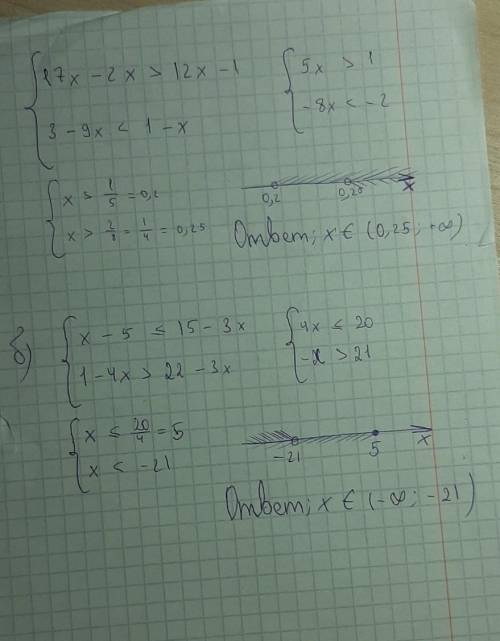 17x - 2x > 12x - 1
3 - 9x < 1 - x
5x > 1
-8x < -2
x > 1/5 = 0,2
x > 2/8 = 1/4 = 0,25
0,2 0,25 x
Ответ; x ∈ (0,25; +∞)
б)
x - 5 ≤ 15 - 3x
1 - 4x > 22 - 3x
4x ≤ 20
-x > 21
x ≤ 20/4 = 5
x < -21
-21 5 x
Ответ; x ∈ (-∞; -21)